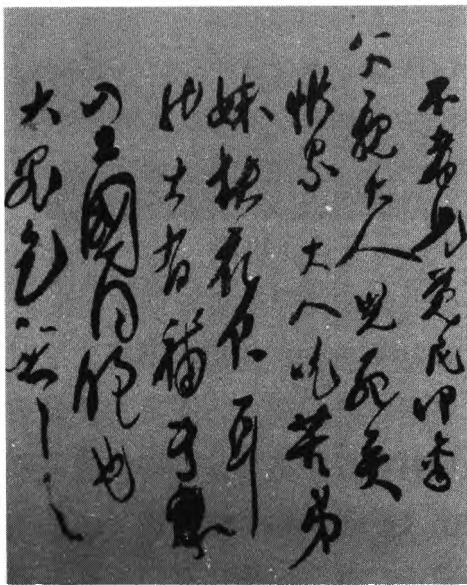 不孝兒覺民叩稟
父親大人兒死矣
惟累 大人吃苦弟
妹缺衣食耳
然大有補于
全國同胞也
大罪乞恕之